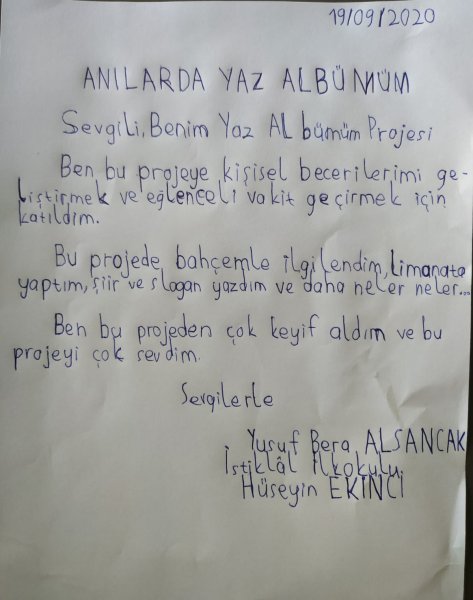 19/09/2020
ANILARDA YAZ ALBÜMÜM
Sevgili, Benim Yaz Al bümüm Projesi
Ben bu projeye kişisel becerilerimi ge-
liştirmek ve eğlenceli vakit geçirmek için
katıldım.
Bu projede bahçemle ilgilendim, limanata
yaptım, şiir ve slogan yazdım ve daha neler neler...
Ben bu projeden çok keyif aldım ve bu
projeyi çok sevdim.
Sevgilerle
Yusuf Bera ALSANCAK
İstiklâl İlkokulu
Hüseyin EKİNCİ